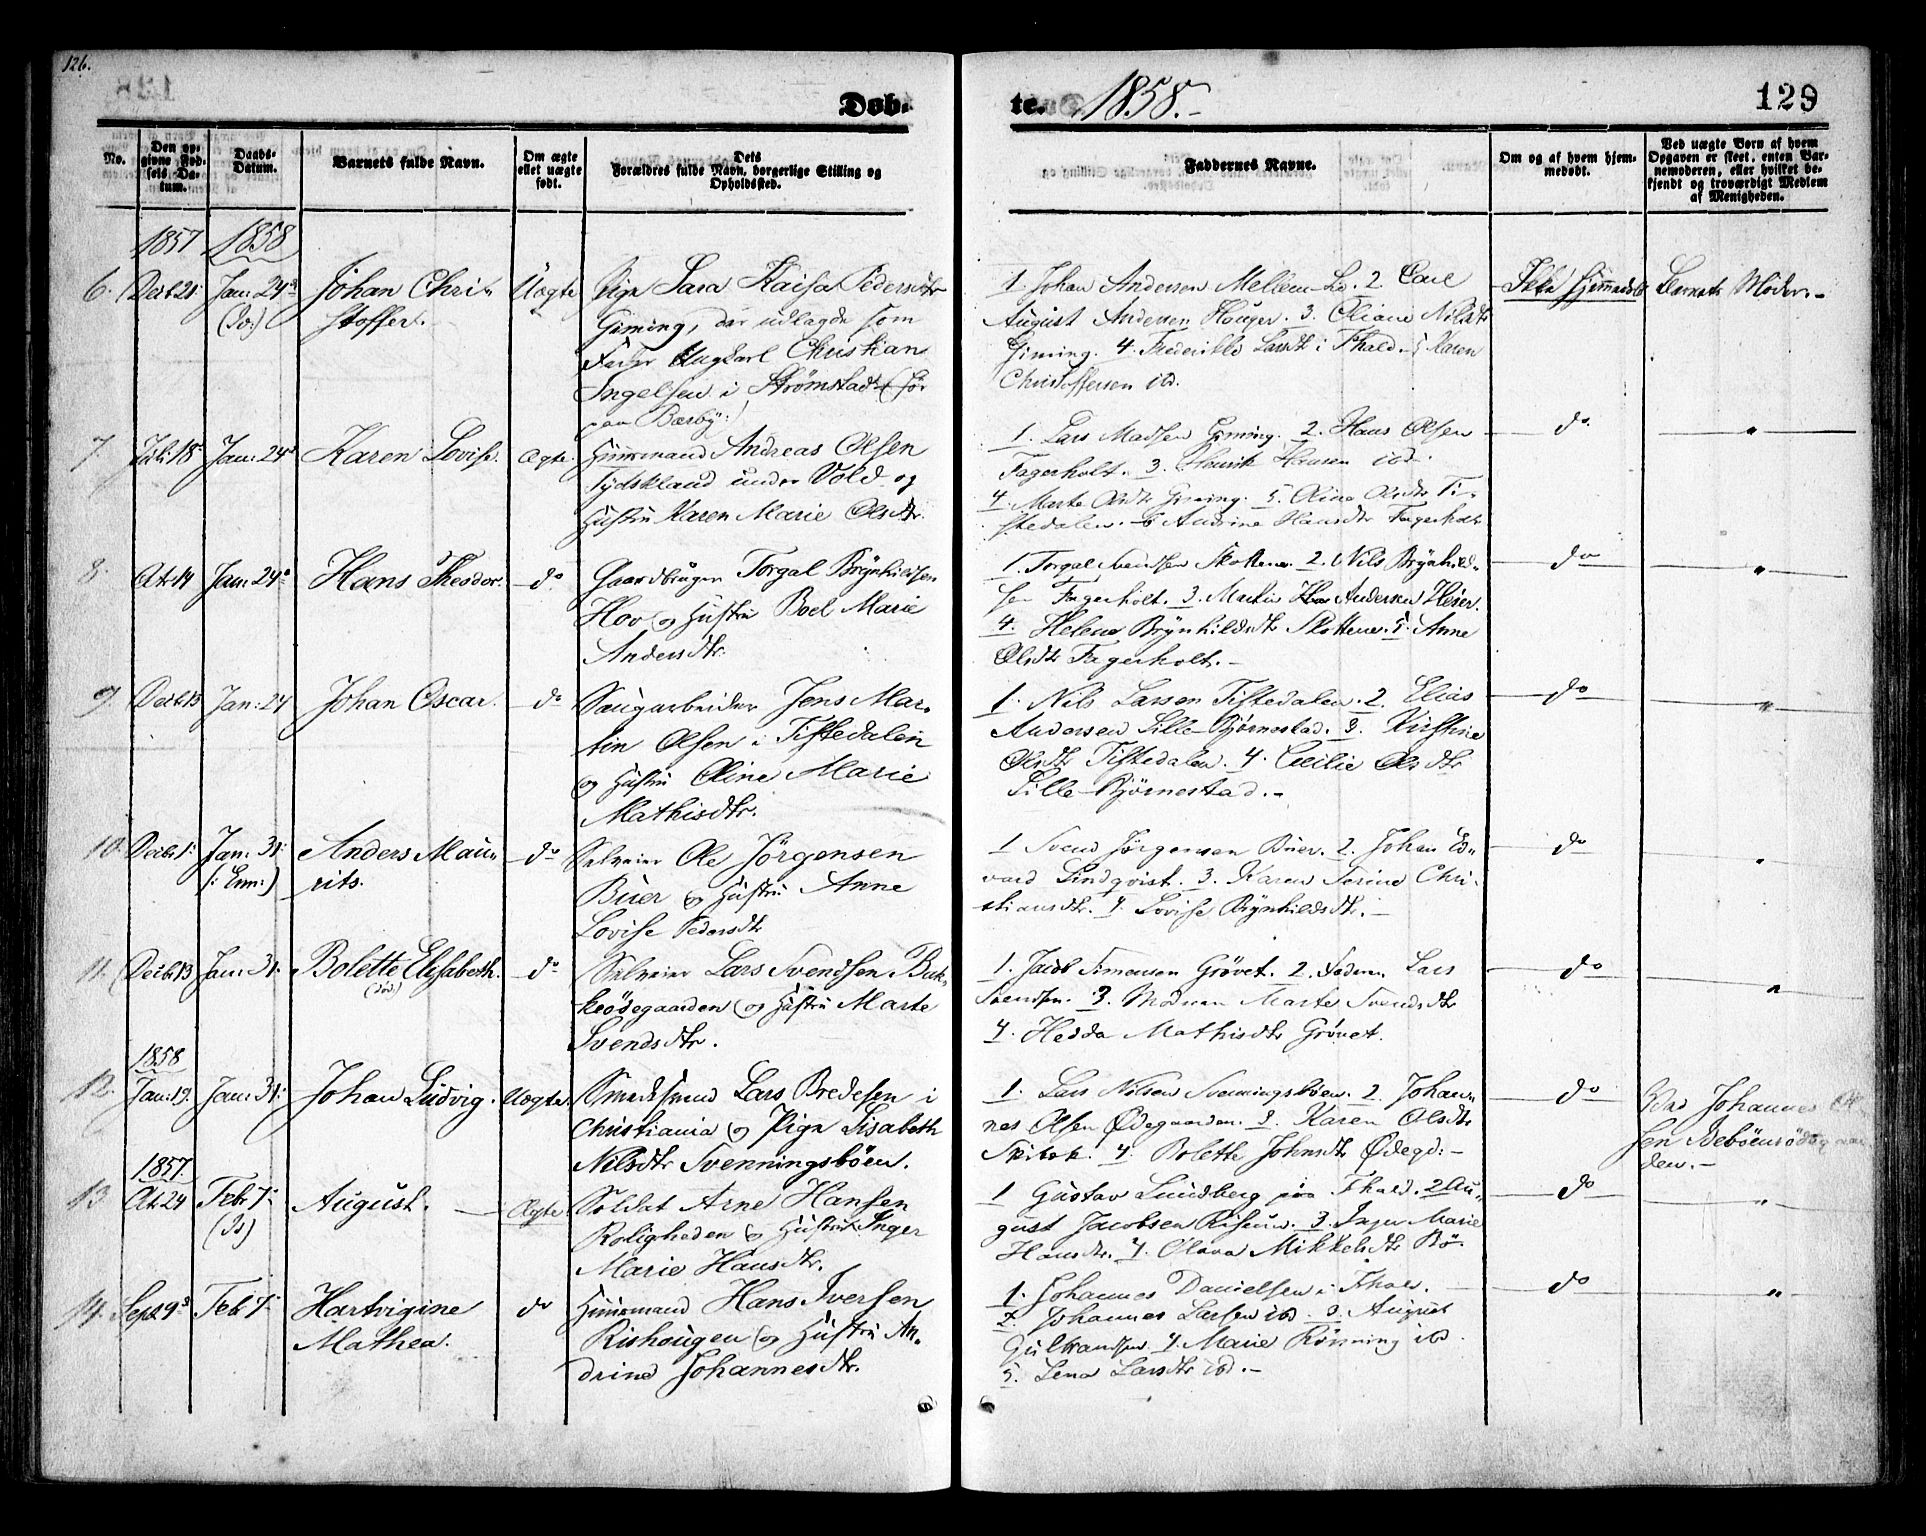 126.
Døb-
te. 1858.-
129
No.
Den op-
givne Fød-
sels Da-
tum.
Daabs-
Datum.
Barnets fulde Navn.
Om ægte
eller uægte
født.
Dets
Forældres fulde Navn, borgerlige Stilling og
Opholdssted.
Faddernes Navne.
Om og af hvem hjem-
medøbt.
Ved uægte Born af hvem
Opgaven er skeet, enten Bar-
nemoderen, eller hvilket be-
kjendt og troværdigt Medlem
af Menigheden.
1857 1858
6. Decb 21 Jan: 24 Johan Chri- Uægte Pige Sara Kaisa Pedersdtr
stoffer.
Giming, der udlagde som
Fader Ungkarl Christian
Ingelsen i Strømstad (før
paa Bærby:)
1 Johan Andersen Mellem 2. Carl
August Andersen Houger. 3. Eliane Nilsdtr
Giming. 4. Frederikke Larsdtr i Fhald. 5 Karen
Christoffersen ibd.
Ikke hjemmedøbt Barnets Moder.-
7. Juli 18 Jan: 24 Karen Lovise. Ægte. Huusmand Andreas Olsen
Tydskland under Vold og
Hustru Karen Marie Olsdtr.
1. Lars Madsen Giming. 2. Hans Olsen
Fagerholt. 3. Henrik Hansen ibd.
4. Marte Olsdtr Giming. 5. Oline Olsdtr Ti-
stedalen. 6 Andrine Hansdtr Fagerholt
do "
8. Jan: 24 Hans Theodor. do Gaardbruger Torgal Brynhildsen
Hov og Hustru Boel Marie
Andersdtr.
1. Torgal Svendsen Skottene. 2. Nils Brynhild-
sen Fagerholt. 3. Martin Andersen Heier.
4. Helene Brynhildsdtr Skottene. 5. Anne
Olsdtr Fagerholt.-
do "
9. Decb 13 Jan: 24 Johan Oscar. do Saugarbeider Jens Mar-
tin Olsen i Tistedalen
og Hustru Oline Marie
Mathisdtr.
1. Nils Larsen Tistedalen. 2. Elias
Andersen Lille-Bjørnestad. 3. Kirstine
Olsdtr Tistedalen. 4. Cecilie Olsdtr
Lille-Bjørnestad.-
do "
10. Decbr 1 Jan: 31 Anders Mau- do Selveier Ole Jørgensen
rits.
Buer og Hustru Anne
Lovise Pedersdtr
1 Svend Jørgensen Buer. 2. Johan Ed-
vard Lindqvist. 3. Karen Serine Chri-
stiansdtr. 4. Lovise Brynhildsdtr.-
do "
11. Decbr 13 Jan: 31 Bolette Elisabeth. do Selveier Lars Svendsen Bak-
keødegaarden og Hustru Marte
Svendsdtr.
1. Jacob Simensen Grøvet. 2. Faderen Lars
Svendsen. 3. Moderen Marte Svendsdtr
4. Hedda Mathisdtr Grøvet.
do "
1858
12. Jan: 19. Jan: 31 Johan Ludvig. Uægte. Smedsvend Lars Bredesen i
Christiania og Pige Lisabeth
Nilsdtr Svenningsbøen.
1. Lars Nilsen Svenningsbøen. 2. Johan-
nes Olsen Ødegaarden. 3. Karen Olsdtr
4. Bolette Johnsdtr Ødegd:-
do
Ved Johannes Ol-
sen
den.-
1857.
13. Febr 7 August. Ægte Soldat Arne Hansen
Roligheden og Hustru Inger
Marie Hansdtr.
1 Gustav Lundberg paa Fhald. 2 Au-
gust Jacobsen Risum. 3. Inger Marie
Hansdtr. 4. Olava Mikkelsdtr Bø.
do "
14. Sept 9 Feb: 7 Hartvigine do Huusmand Hans Iversen
Mathea.
Rishougen og Hustru An-
drine Johannesdtr.
1. Johannes Danielsen i Fhald.
2. Johannes Larsen ibd 3 August
Gulbrandsen 4. Marie Rønning ibd.
5. Lena Larsdtr ibd.-
do "